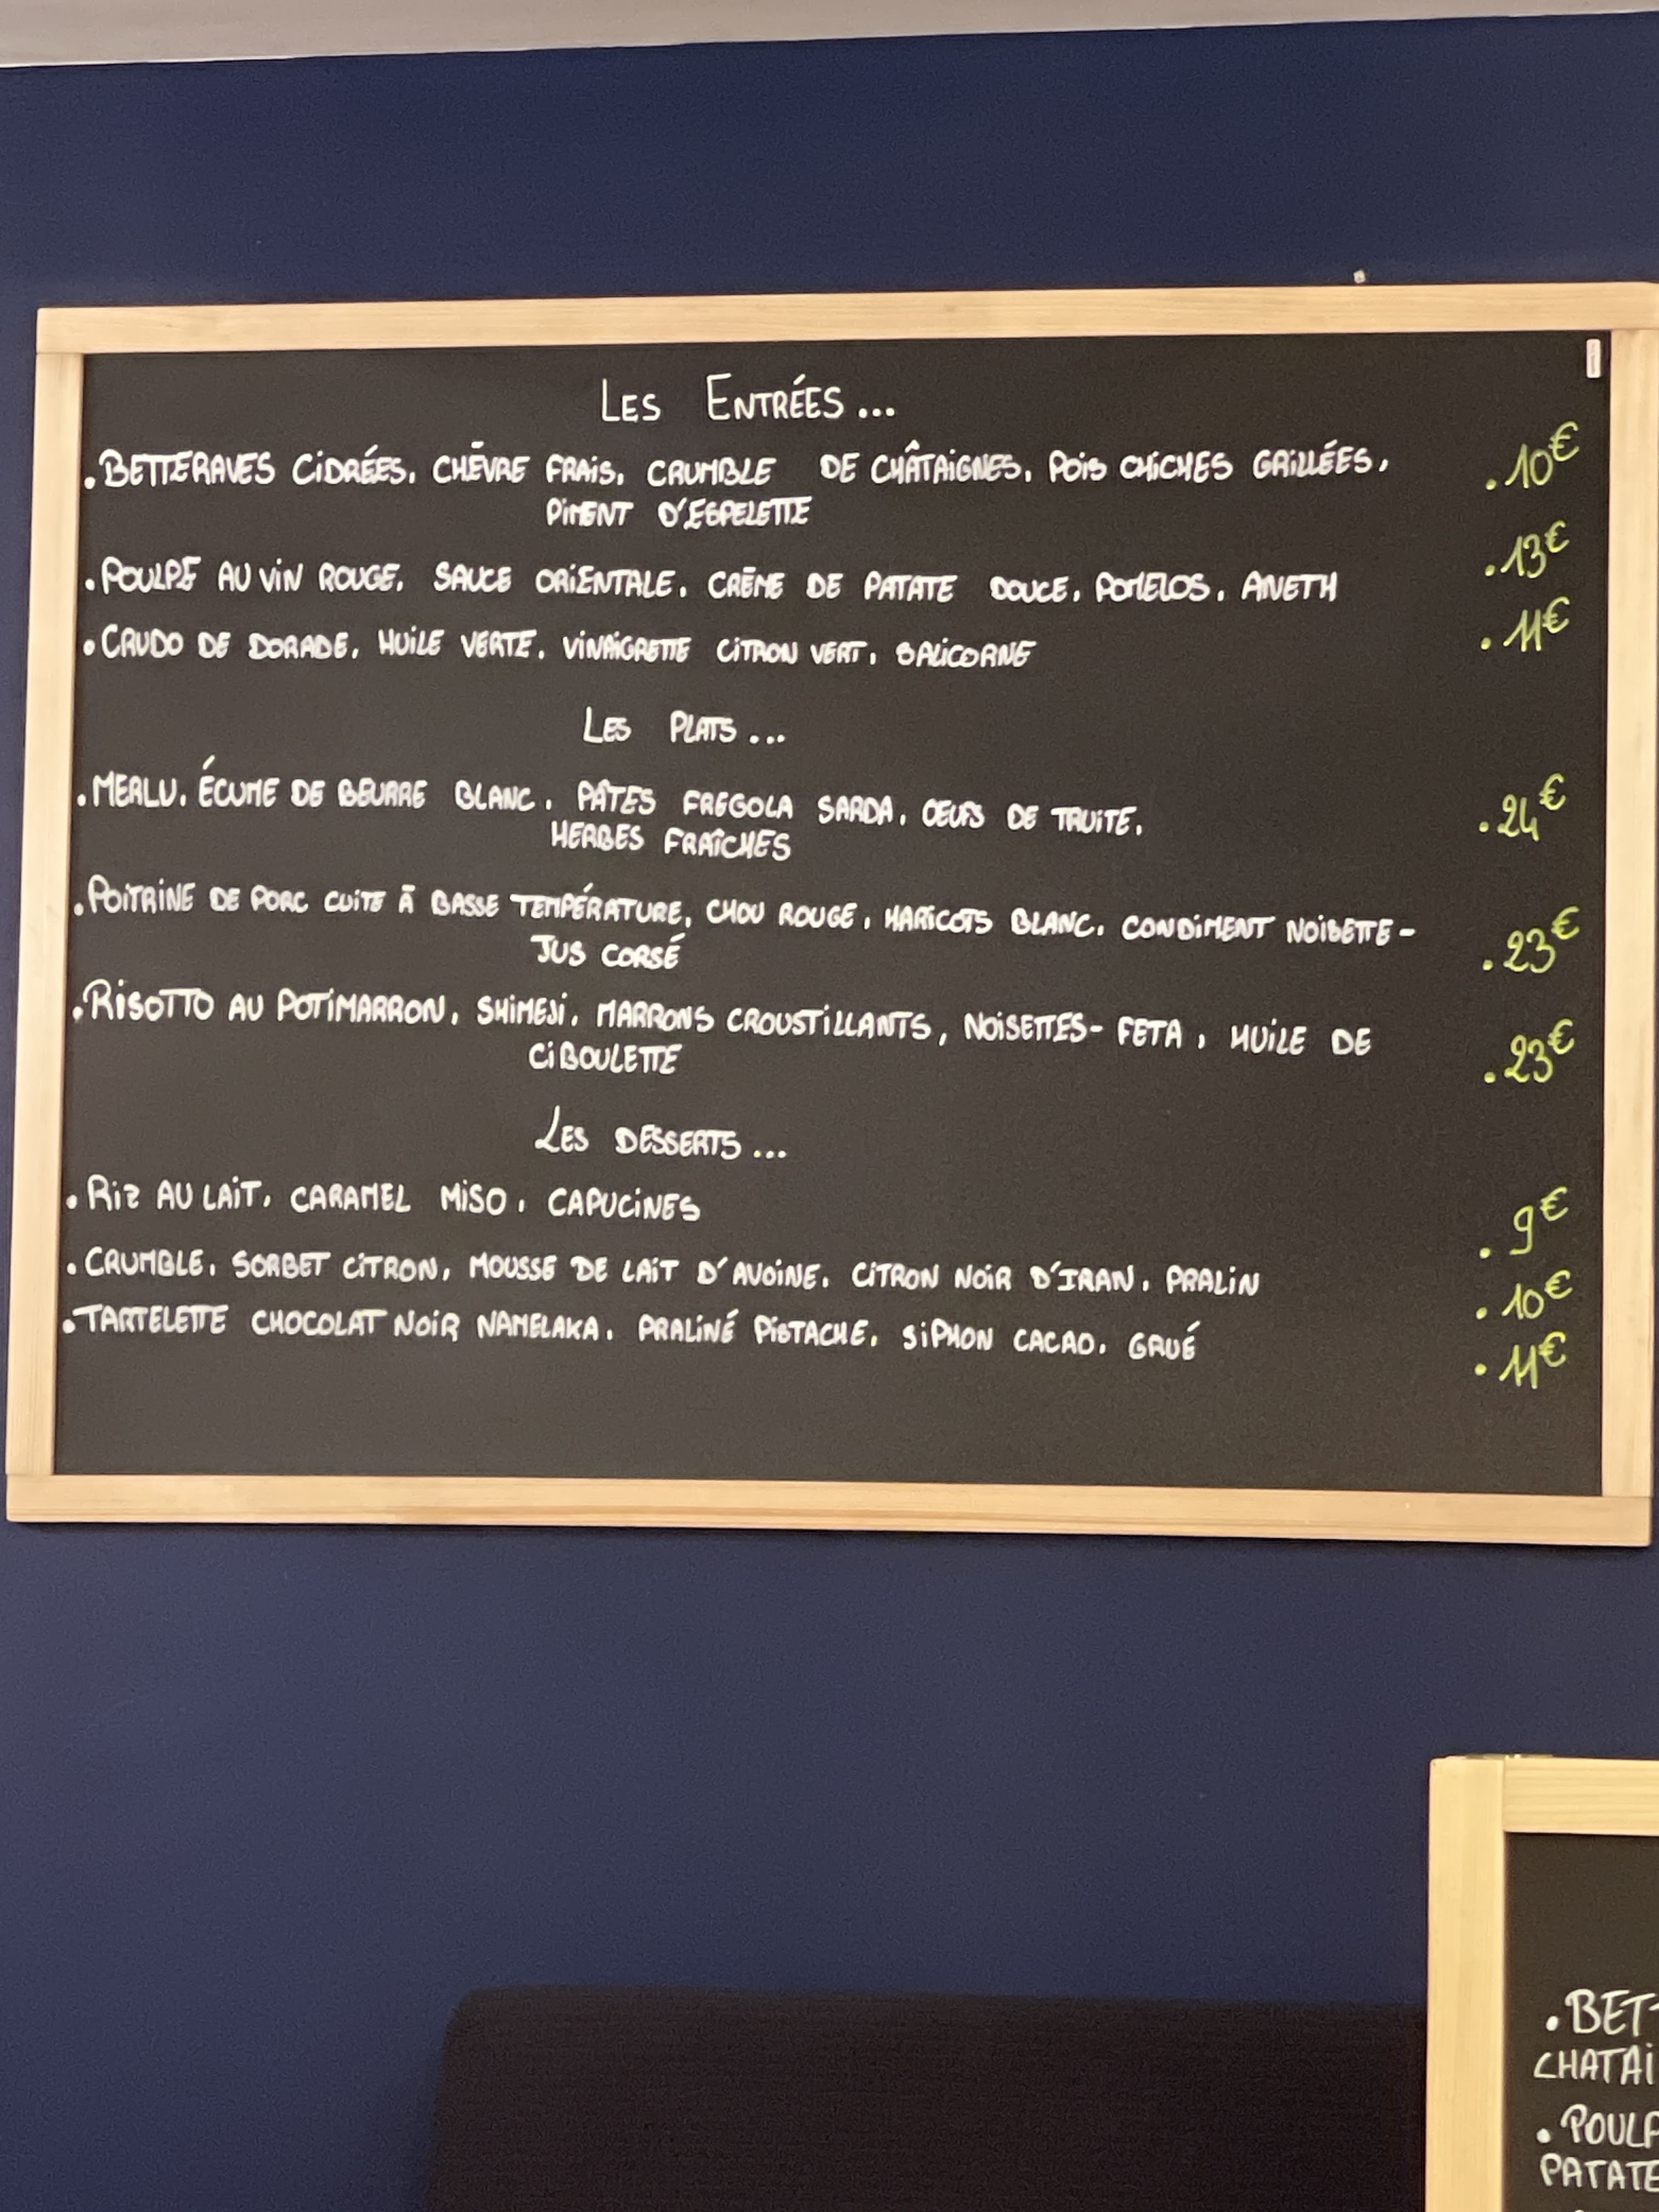 LES ENTRÉES...
.BETTERAVES CIDRÉES, CHÈVRE FRAIS, CRUMBLE DE CHÂTAIGNES, POIS CHICHES GRILLÉES, .10€
PIMENT D'ESPELETTE
.POULPE AU VIN ROUGE, SAUCE ORIENTALE, CRÈME DE PATATE DOUCE, POMELOS, ANETH .13€
.CRUDO DE DORADE, HUILE VERTE, VINAIGRETTE CITRON VERT, SALICORNE .11€
LES PLATS...
.MERLU, ÉCUME DE BEURRE BLANC, PÂTES FREGOLA SARDA, ŒUFS DE TRUITE, .24€
HERBES FRAÎCHES
.POITRINE DE PORC CUITE À BASSE TEMPÉRATURE, CHOU ROUGE, HARICOTS BLANC, CONDIMENT NOISETTE- .23€
JUS CORSÉ
.RISOTTO AU POTIMARRON, SHIMEJI, MARRONS CROUSTILLANTS, NOISETTES- FETA, HUILE DE .23€
CIBOULETTE
LES DESSERTS...
.RIZ AU LAIT, CARAMEL MISO, CAPUCINES .9€
.CRUMBLE, SORBET CITRON, MOUSSE DE LAIT D'AVOINE, CITRON NOIR D'IRAN, PRALIN .10€
.TARTELETTE CHOCOLAT NOIR NAMELAKA, PRALINÉ PISTACHE, SIPHON CACAO, GRUÉ .11€
.BET
CHATAI
.POULP
PATATE